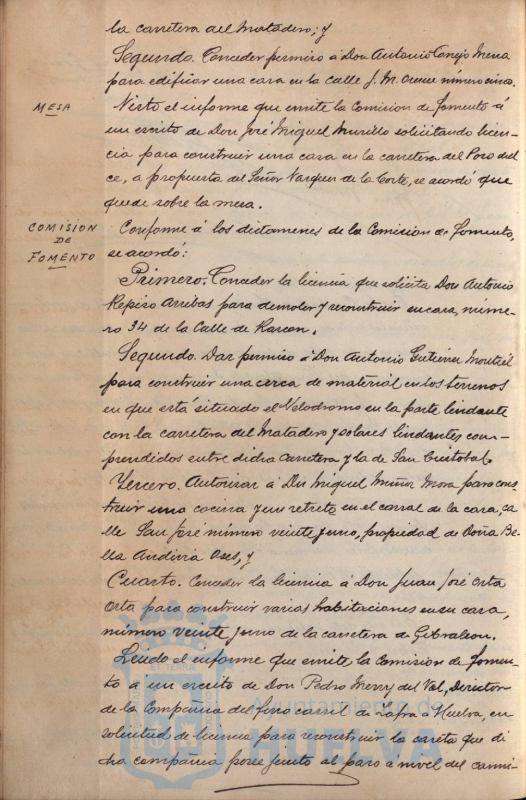 la carretera del Matadero; y
Segundo. Conceder permiso á Don Antonio Conejo Mena
para edificar una casa en la calle J. M. Orense número cinco.
MESA
Visto el informe que emite la Comision de fomento á
un escrito de Don José Miguel Murillo solicitando licen-
cia para construir una casa en la carretera del Pozo dul
ce, a propuesta del Señor Vazquez de la Corte, se acordó que
quede sobre la mesa.
COMISION
DE
FOMENTO
Conforme á los dictamenes de la Comision de fomento,
se acordó:
Primero. Conceder la licencia que solicita Don Antonio
Repiso Arribas para demoler y reconstruir su casa, núme-
ro 34 de la Calle de Rascon.
Segundo. Dar permiso á Don Antonio Gutierrez Montiel
para construir una cerca de material en los terrenos
en que está situado el Velodromo en la parte lindante
con la carretera del Matadero y solares lindantes com-
prendidos entre dicha carretera y la de San Cristobal.
Tercero. Autorizar á Don Miguel Muñoz Mora para cons-
truir una cocina y un retrete en el corral de la casa, ca-
lle San José número veinte y uno, propiedad de Doña Be-
lla Andivia Oses, y
Cuarto. Conceder la licencia á Don Juan José Orta
Orta para construir varias habitaciones en su casa,
número veinte y uno de la carretera de Gibraleon.
Leido el informe que emite la Comision de fomen-
to a un escrito de Don Pedro Merry del Val, Director
de la Compañia del ferro carril de Zafra á Huelva, en
solicitud de licencia para reconstruir la caseta que di
cha compañia posee junto al paso a nivel del cami-
Ayuntamiento de
HUELVA